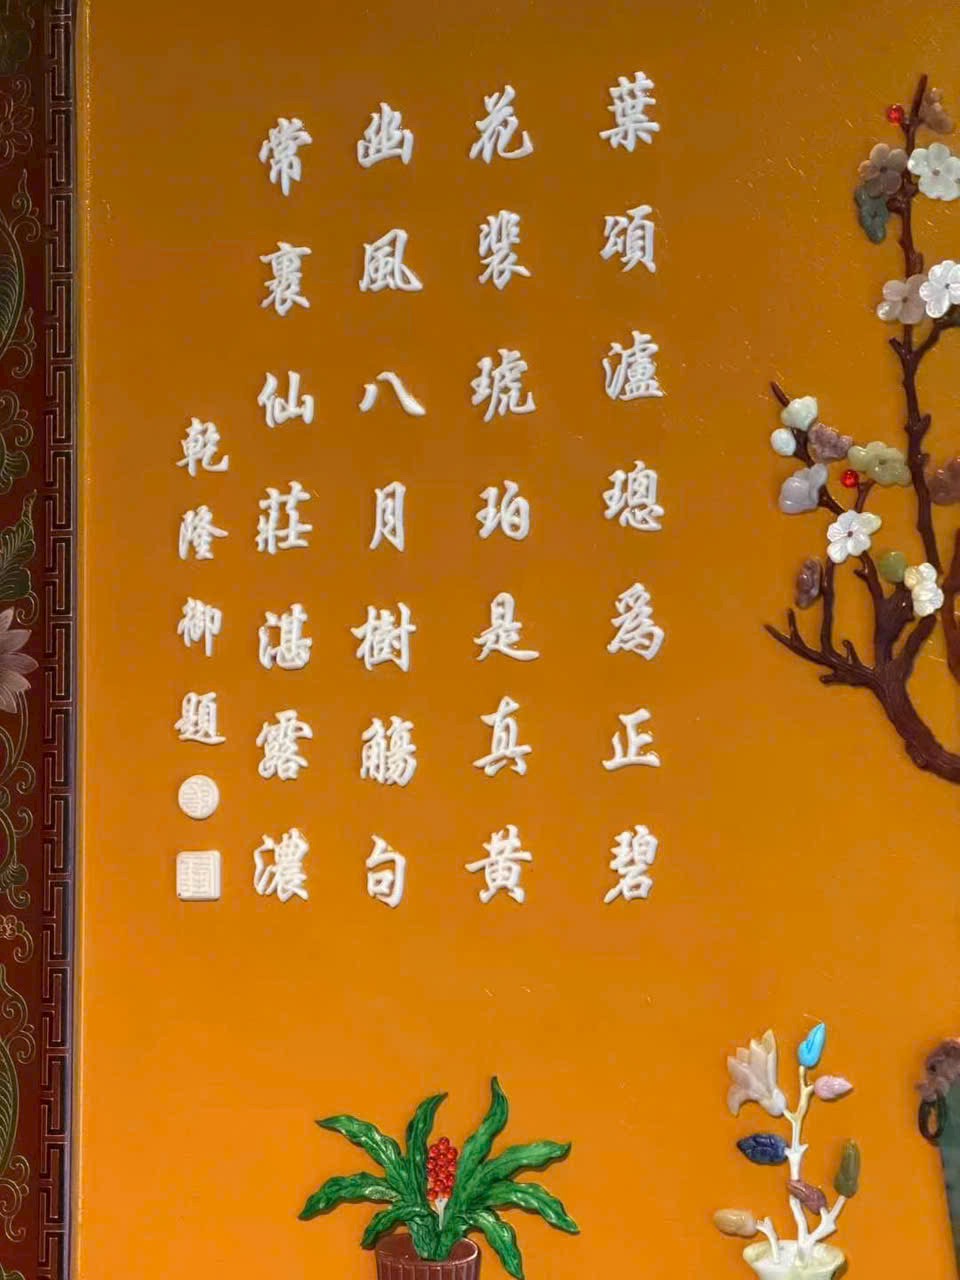 葉頌瀘璁為正碧
花裴琥珀是真黄
幽風八月樹觴句
常裹仙莊湛露濃
乾隆御題